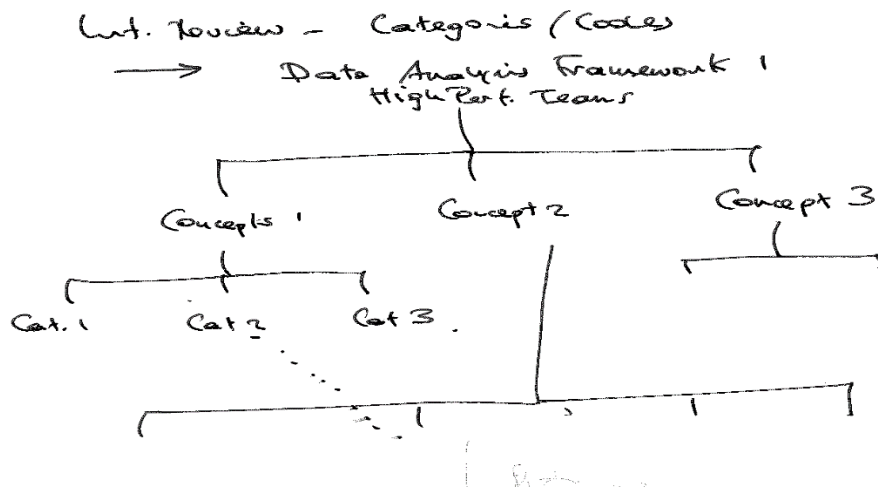 Lit. Review - Categories (Codes)
→ Data Analysis Framework 1
High Perf. Teams
Concepts 1 Concept 2 Concept 3
Cat. 1 Cat 2 Cat 3.